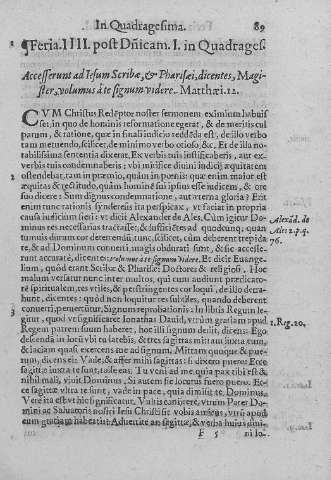 In Quadragesima. 89
¶Feria.IIII. post Dñicam.I. in Quadrages.
Accesserunt ad Iesum Scribæ, & Pharisæi, dicentes, Magi-
ster, volumus à te signum videre. Matthæi.12.
CVM Christus Redẽptor noster sermonem eximium habuis
set, in quo de hominis reformatione egerat, & de meritis cul
parum, & ratione, quæ in finali iudicio reddẽda est, de illo verbo
tam metuendo, scilicet, de minimo verbo otioso, &c. Et de illa no-
tabilissima sententia diceret, Ex verbis tuis iustificaberis, aut ex
verbis tuis condemnaberis; vbi mirificè diuini iudicij æquitatem
ostendebat, tam in præmio, quàm in pœnis: quæ enim maior est
æquitas & rectitudo, quàm hominẽ sui ipsius esse iudicem, & ore
suo dicere: Sum dignus condemnatione, aut æterna gloria? Erit
enim tunc rationis synderesis ita perspicax, vt fateatur in propria
causa iudicium
fieri: vt dicit Alexander de Ales, Cùm igitur Do-
minus res necessarias tractasset, & sufficiẽtes ad quodcunq; quan
tumuis durum cor deterrendũ: tunc, scilicet, cùm deberent trepida
re, & ad Dominum conuerti, magis obdurati sunt, & sic accesse-
runt accuratè, dicentes: volumus à te signum videre. Et dicit Euange-
lium, quòd erant Scribæ & Pharisæi: Doctores & religiosi. Hoc
malum versatur nunc inter multos, qui cum audiunt prædicato-
rẽ spiritualem, res vtiles, & perstringentes cor loqui, illo dedera-
hunt, dicentes: quòd non loquitur res subtiles, quando deberent
conuerti, pœniteri, Signum reprobationis. In libris Regum le-
gitur, quòd vt signaret Ionathas Dauid, vtrùm gratiam apud
Regem patrem suum haberet, hoc illi signum dedit, dicens: Ego
descendã in locũ vbi tu latebis, & tres sagittas mittam iuxta eum,
& iaciam quasi exercens me ad signum, Mittam quoque & pue-
rum, dicens ei: Vade, & affer mihi sagittas: si dixero puero: Ecce
sagittæ intra te sunt, tolle eas: Tu veni ad me, quia pax tibi est &
nihil mali, viuit Dominus, Si autem sic locutus fuero puero: Ec-
ce sagittæ vltra te sunt, vade in pace, quia dimisit te Dominus.
Verè ita est vt hic significatur. Vultis cauiret, vtrùm Pater Do-
mini ac Saluatoris nostri Iesu Christi sit vobis amicus, vtrùm apud
eum gratiam habeatis? Aduertite an sagittæ, & verba huius simi-
F 5 ni lo-
Alexãd. de
Ales 2.p.q.
76.
1.Reg.20.